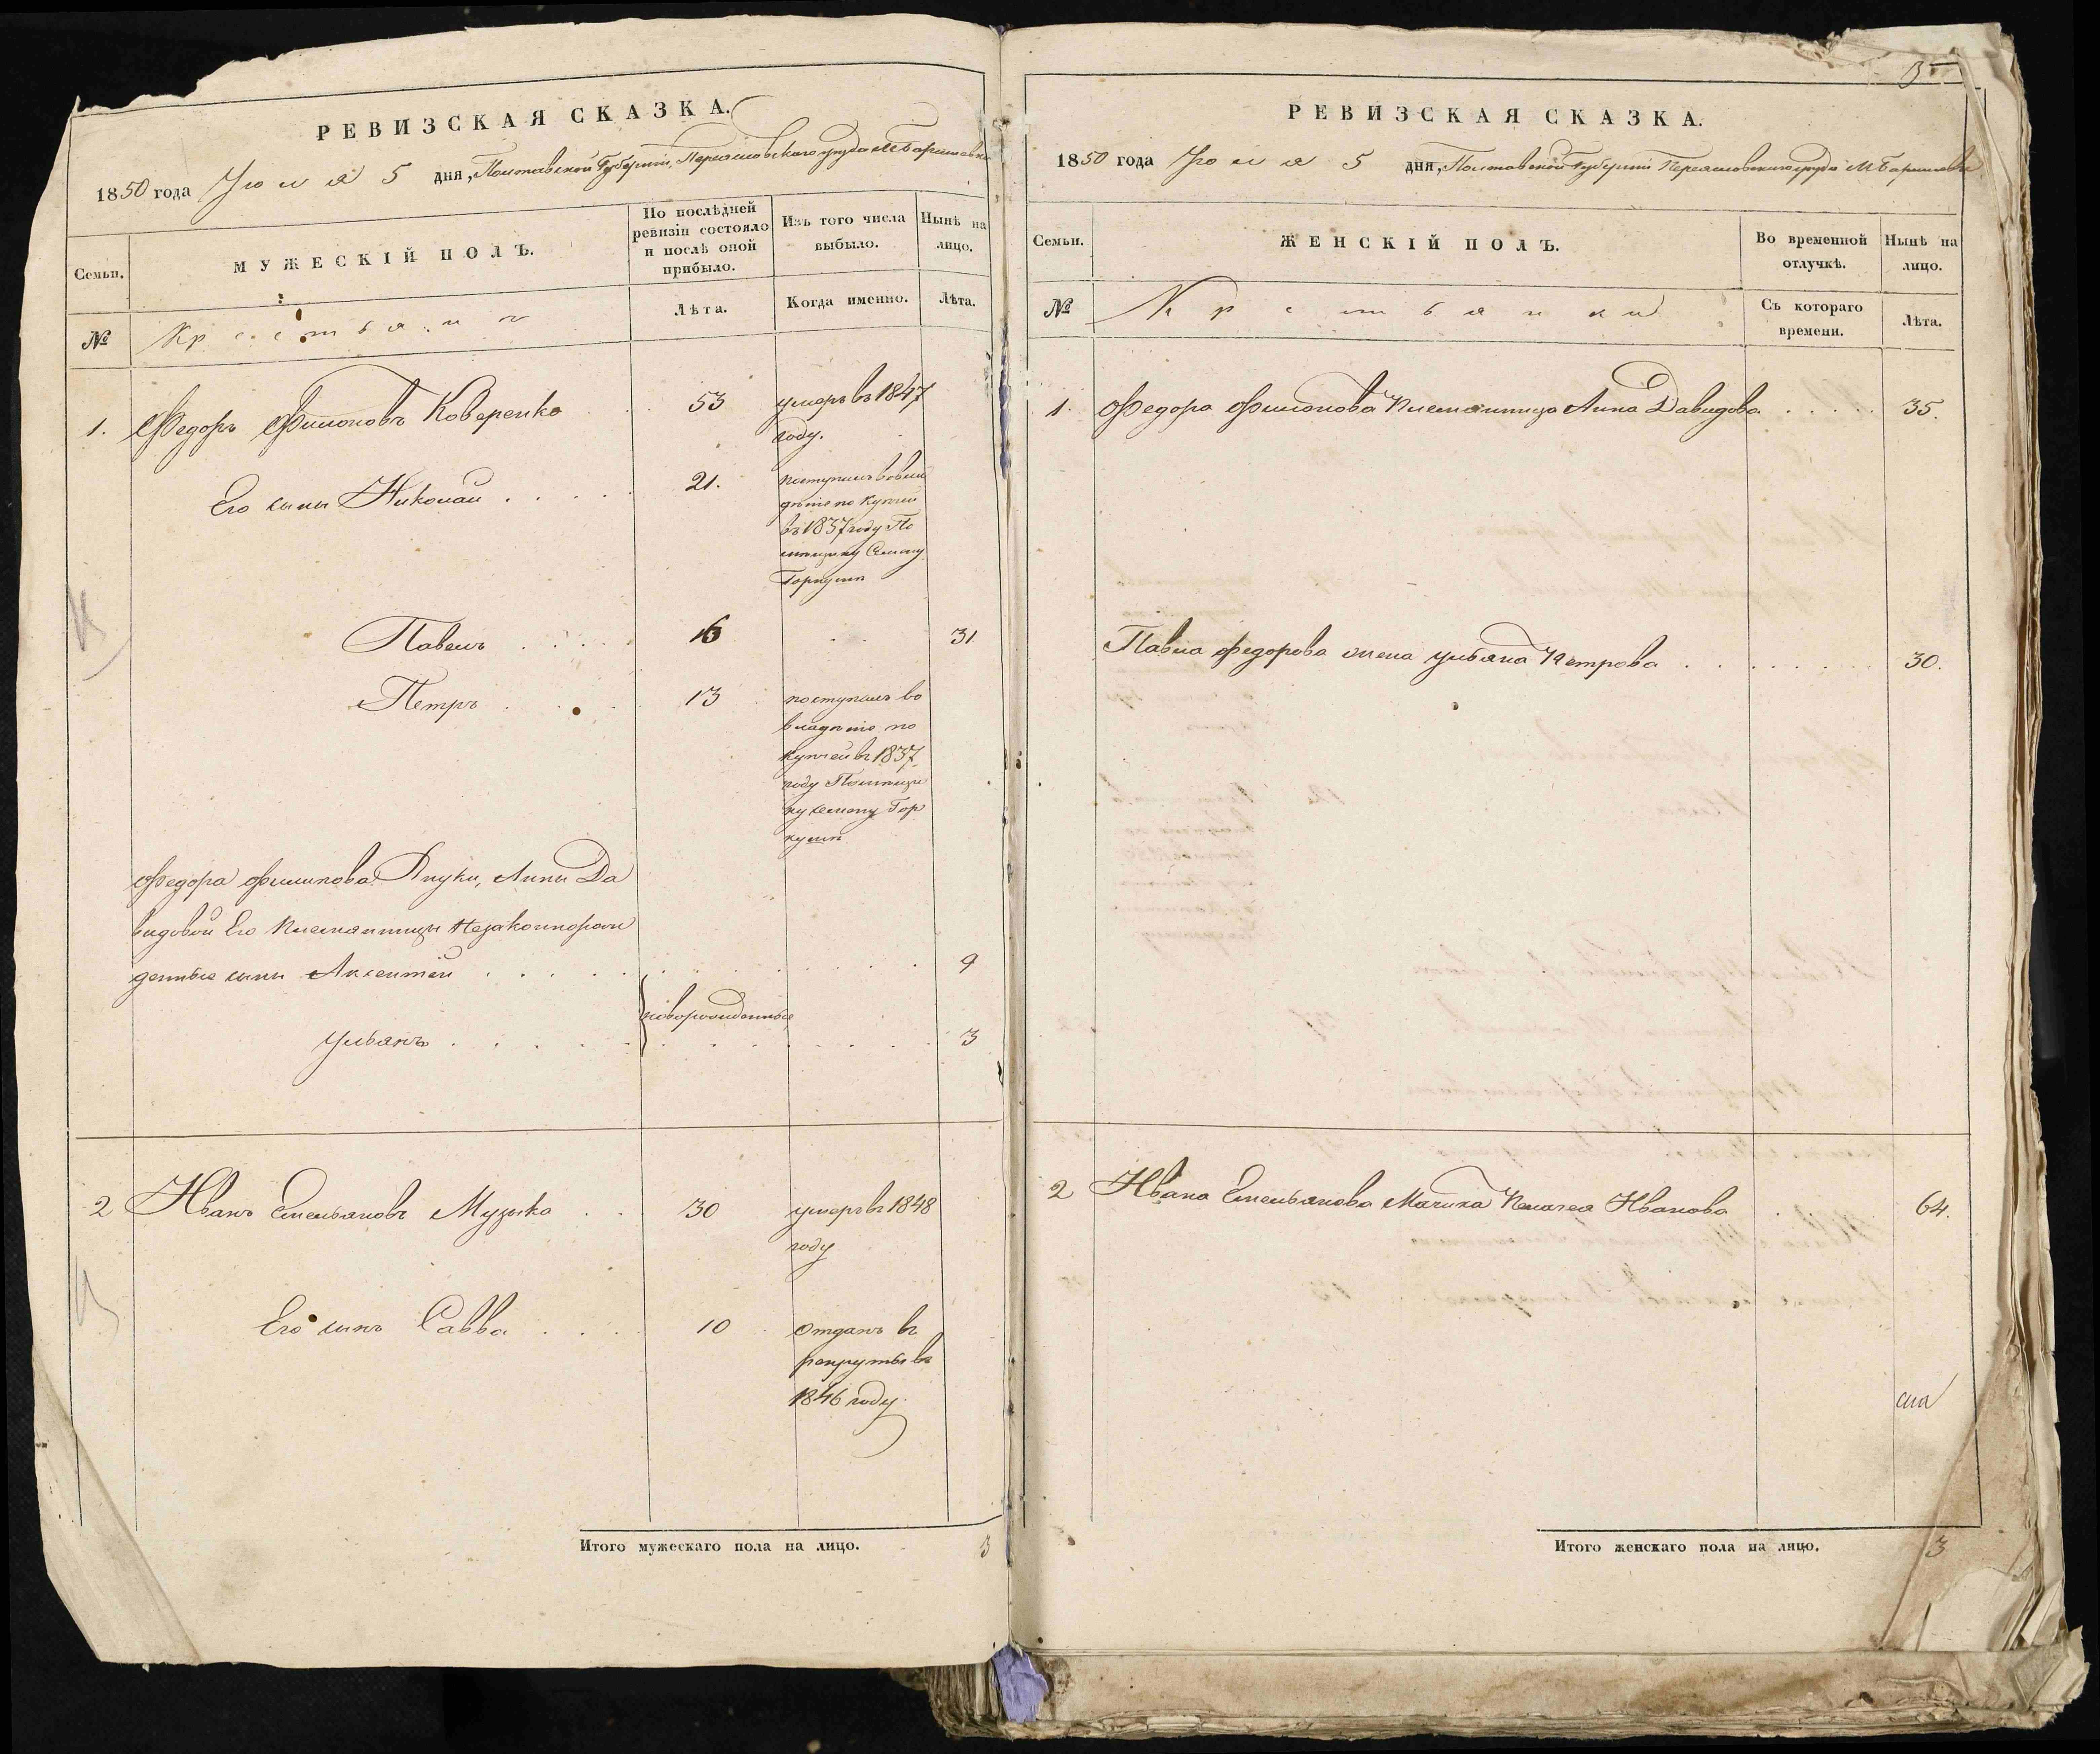 РЕВИЗСКАЯ СКАЗКА.
1850 года Июля 5 дня, Полтавской Губерніи, Переяславскаго уезда М Баришевки
Семьи.
МУЖЕСКІЙ ПОЛЪ.
По послѣдней ревизіи состояло и послѣ оной прибыло.
Изъ того числа выбыло.
Нынѣ на лицо.
№
Крестьяни
Лѣта.
Когда именно.
Лѣта.
1. Федоръ Филоновъ Коваренко 53 умеръ въ 1847
году.
Его сыны Николай 21. поступилъ вовла
дѣніе по купчей
въ 1837 году По
мещику Семену
Горкуши
Павелъ 16 31
Петръ 13 поступилъ во
владѣніе по
купчей въ 1837
году Помещи
ку Семену Гор
куши
Федора Филипова Внуки, Анны Да
видовой Его племянницы незаконнорож
денные сыны Аксентий 9
новорожденные
Ульянъ 3
2 Иванъ Емельяновъ Музыка 30 умеръ въ 1848
году
Его сынъ Савва 10 отданъ въ
рекруты въ
1846 году.
Итого мужескаго пола на лицо. 3
РЕВИЗСКАЯ СКАЗКА.
1850 года Июля 5 дня, Полтавской Губерніи Переяславскаго уезда М Баришевки
Семьи.
ЖЕНСКІЙ ПОЛЪ.
Во временной отлучкѣ.
Нынѣ на лицо.
№
Крестьянки
Съ котораго времени.
Лѣта.
1. Федора Филонова племянница Анна Давидова 35.
Павла Федорова жена Ульяна Петрова 30.
2 Ивана Емельянова Мачиха Пелагея Иванова 64.
Итого женскаго пола на лицо. 3